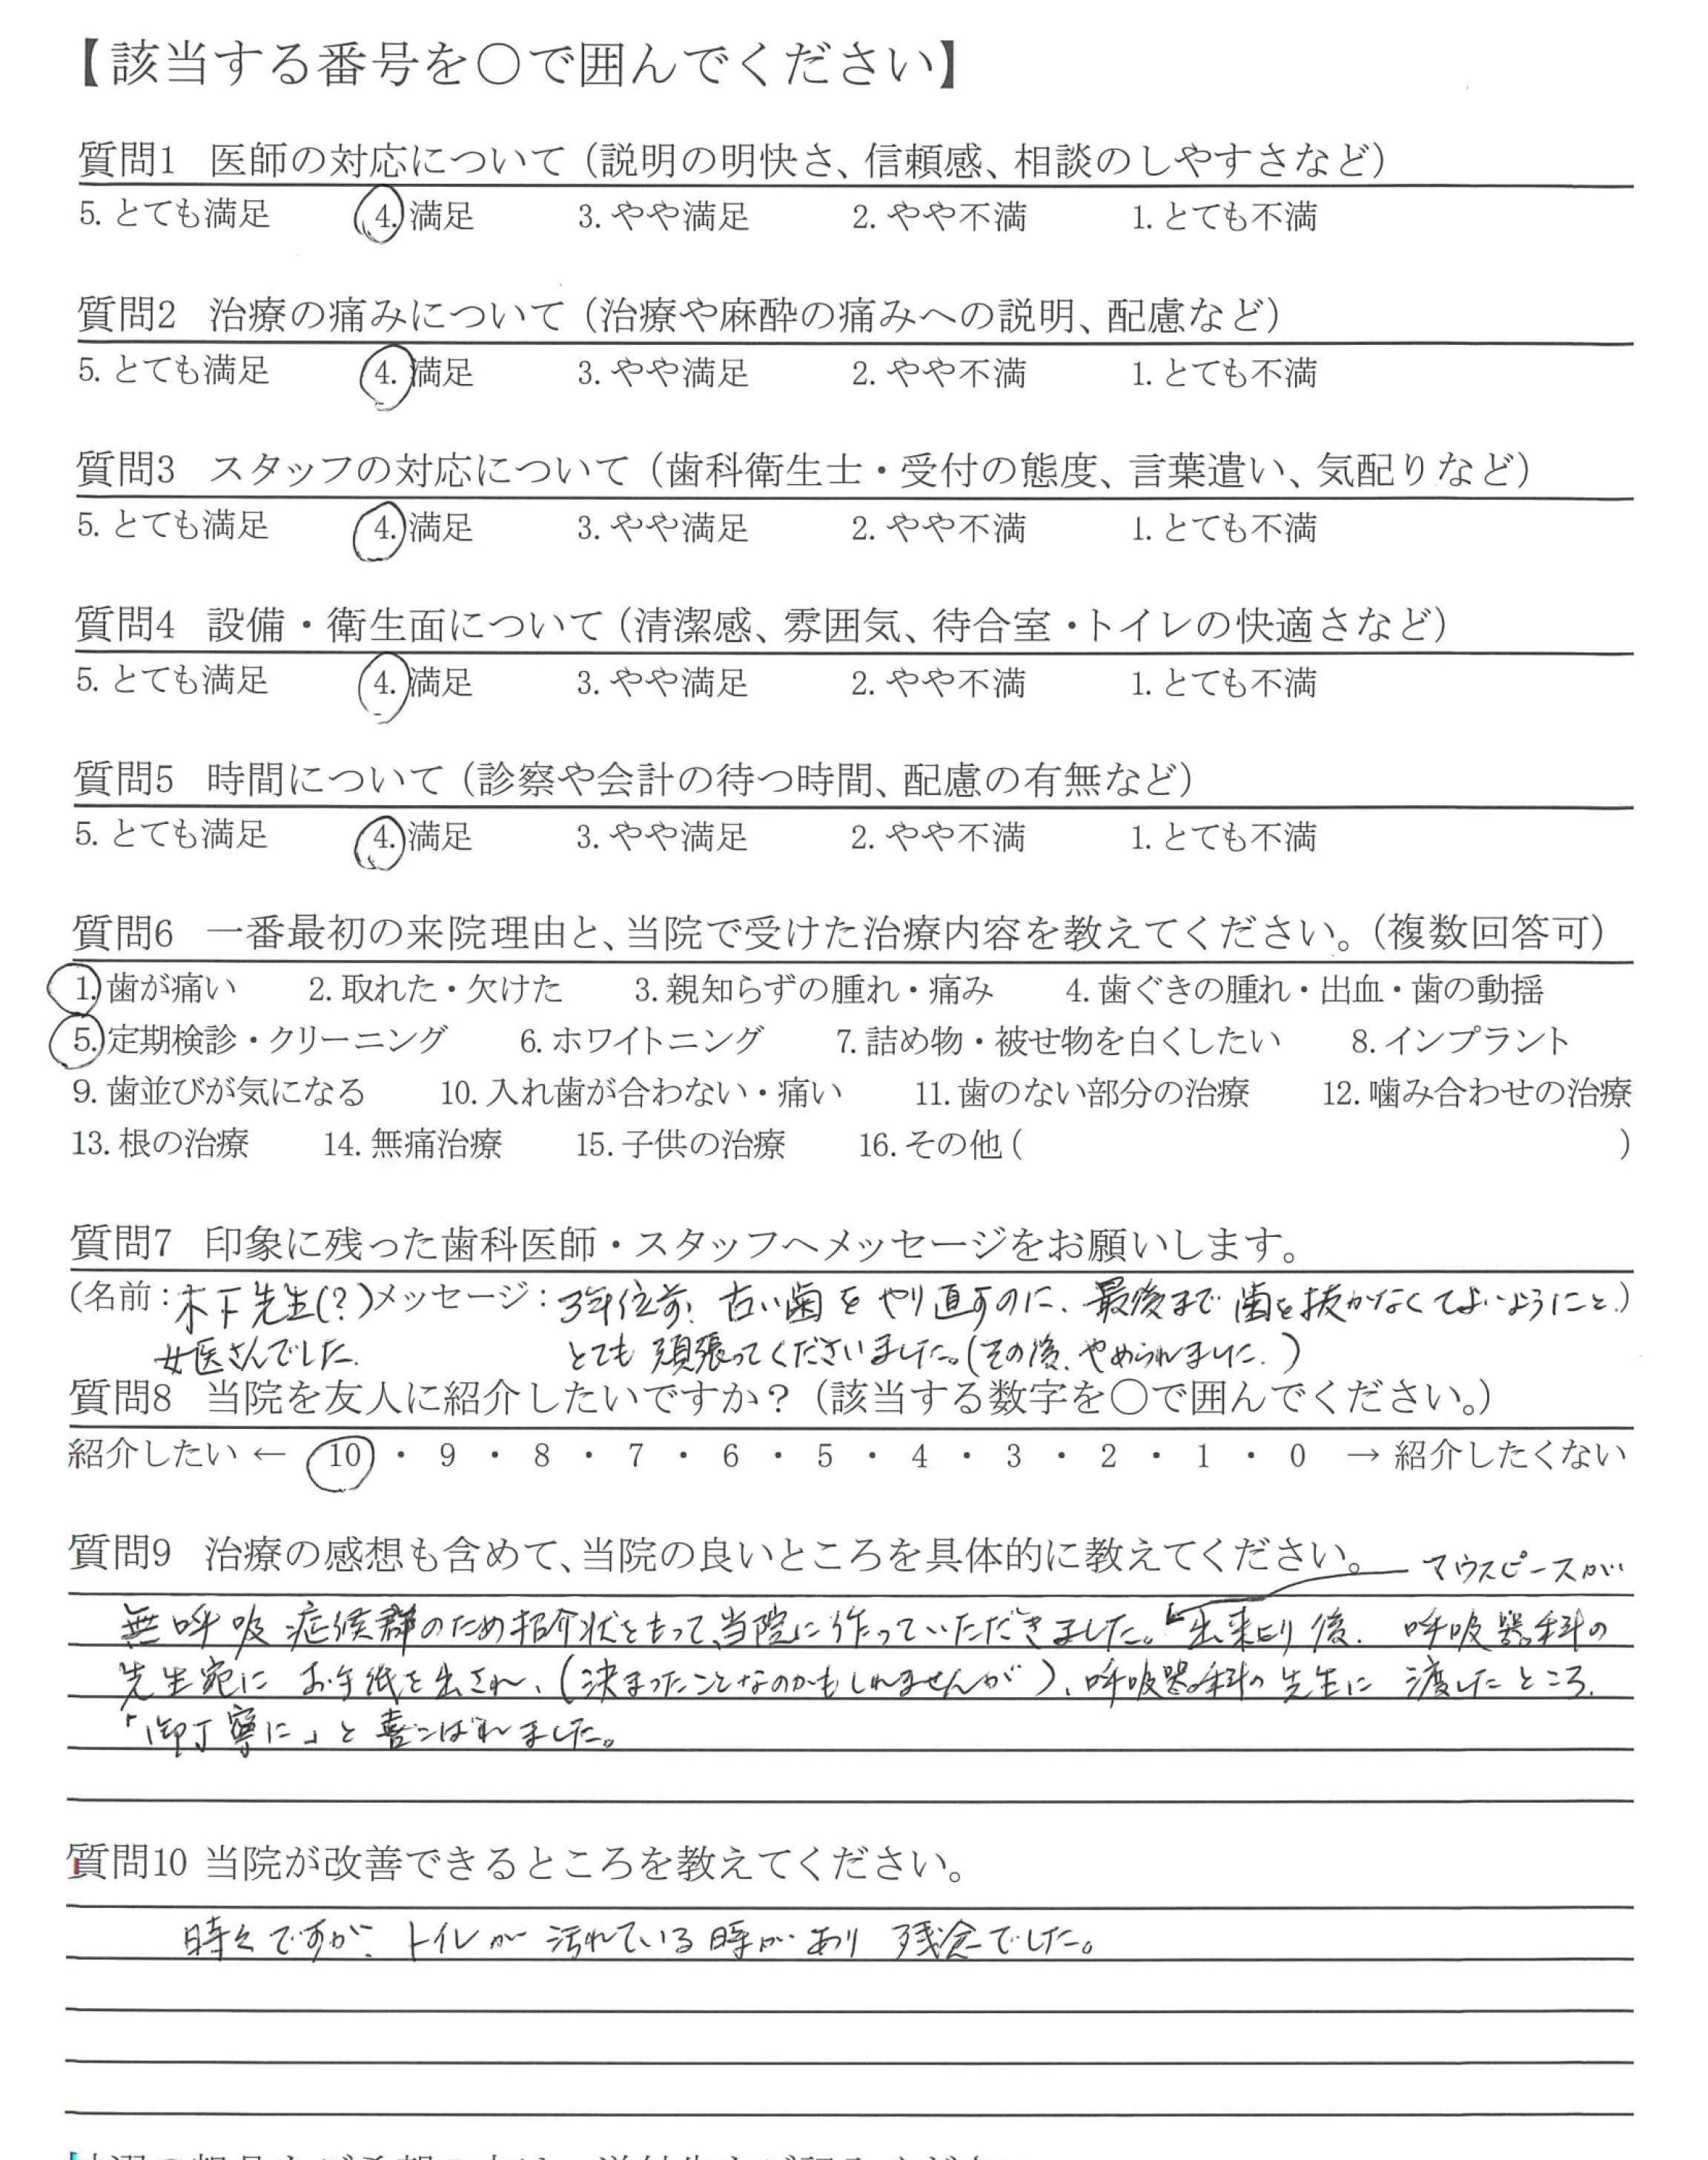 【該当する番号を○で囲んでください】
質問1 医師の対応について（説明の明快さ、信頼感、相談のしやすさなど）
5. とても満足 4. 満足 3. やや満足 2. やや不満 1. とても不満
質問2 治療の痛みについて（治療や麻酔の痛みへの説明、配慮など）
5. とても満足 4. 満足 3. やや満足 2. やや不満 1. とても不満
質問3 スタッフの対応について（歯科衛生士・受付の態度、言葉遣い、気配りなど）
5. とても満足 4. 満足 3. やや満足 2. やや不満 1. とても不満
質問4 設備・衛生面について（清潔感、雰囲気、待合室・トイレの快適さなど）
5. とても満足 4. 満足 3. やや満足 2. やや不満 1. とても不満
質問5 時間について（診察や会計の待つ時間、配慮の有無など）
5. とても満足 4. 満足 3. やや満足 2. やや不満 1. とても不満
質問6 一番最初の来院理由と、当院で受けた治療内容を教えてください。（複数回答可）
1. 歯が痛い 2. 取れた・欠けた 3. 親知らずの腫れ・痛み 4. 歯ぐきの腫れ・出血・歯の動揺
5. 定期検診・クリーニング 6. ホワイトニング 7. 詰め物・被せ物を白くしたい 8. インプラント
9. 歯並びが気になる 10. 入れ歯が合わない・痛い 11. 歯のない部分の治療 12. 噛み合わせの治療
13. 根の治療 14. 無痛治療 15. 子供の治療 16. その他（ ）
質問7 印象に残った歯科医師・スタッフへメッセージをお願いします。
（名前：木下先生(?) メッセージ：3年位前、古い歯をやり直すのに、最後まで歯を抜かなくてよいようにと、）
女医さんでした。 とても頑張ってくださいました。（その後、やめられました。）
質問8 当院を友人に紹介したいですか？（該当する数字を○で囲んでください。）
紹介したい ← 10 ・ 9 ・ 8 ・ 7 ・ 6 ・ 5 ・ 4 ・ 3 ・ 2 ・ 1 ・ 0 → 紹介したくない
質問9 治療の感想も含めて、当院の良いところを具体的に教えてください。
マウスピースが
無呼吸症候群のため紹介状をもって、当院に作っていただきました。出来上り後、呼吸器科の
先生宛にお手紙を出され、（決まったことなのかもしれませんが）、呼吸器科の先生に渡したところ、
「御丁寧に」と喜こばれました。
質問10 当院が改善できるところを教えてください。
時々ですが、トイレが汚れている時があり残念でした。